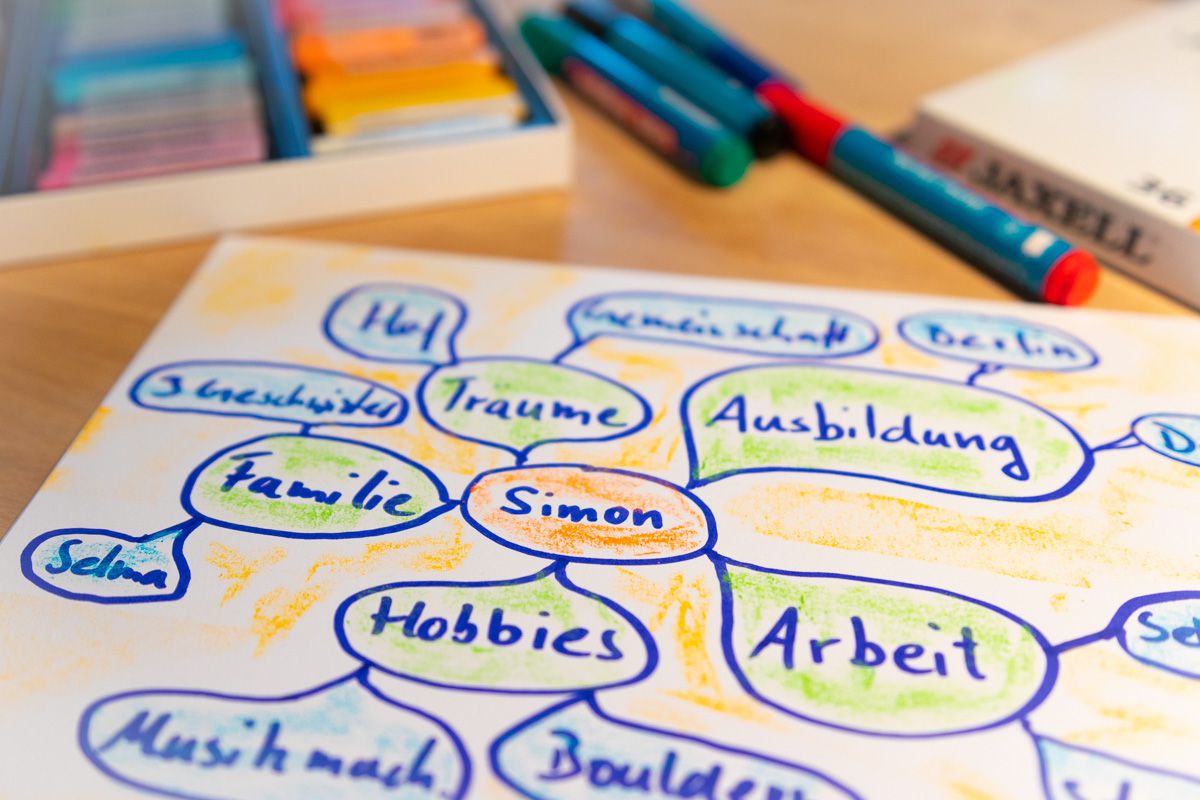 JAXELL
36
Hof
Gemeinschaft
Berlin
3 Geschwister
Träume
Ausbildung
D
Familie
Simon
Selma
Hobbies
Arbeit
Se
Musik mach.
Boulder